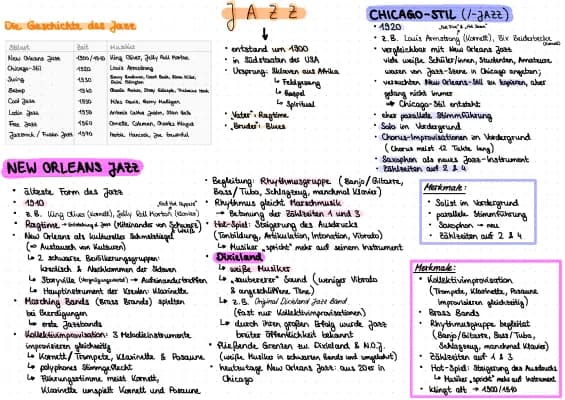 Die Geschichte des Jazz
Stilart Zeit Musiker
New Orleans Jazz 1900/1910 King Oliver, Jelly Roll Morton
Chicago-Stil 1920 Louis Armstrong
Swing 1930
Bebop 1940
Cool Jazz 1950 Miles Davis, Gerry Mulligan
Latin Jazz 1950
Free Jazz 1960 Ornette Coleman,
Jazzrock / Fusion Jazz 1970 Herbie Hancock, Joe Zawinul
JAZZ
• entstand um 1900
• in Südstaaten der USA
• Ursprung: Sklaven aus Afrika
↳ Feldgesang
↳ Gospel
↳ Spiritual
• „Vater": Ragtime
• „Bruder": Blues
CHICAGO-STIL (/-JAZZ)
• 1920
• z.B. Louis Armstrong (Kornett), Bix Beiderbecke (Kornett)
• vergleichbar mit New Orleans Jazz
viele weiße Schüler/innen, Studenten, Amateure
waren von Jazz-Szene in Chicago angetan;
versuchten New Orleans-Stil zu kopieren, aber
gelang nicht immer
→ Chicago-Stil entsteht
• eher parallele Stimmführung
• Solo im Vordergrund
• Chorus-Improvisationen im Vordergrund
(Chorus meist 12 Takte lang)
• Saxophon als neues Jazz-Instrument
• Zählzeiten auf 2 & 4
Merkmale:
• Solist im Vordergrund
• parallele Stimmführung
• Saxophon → neu
• Zählzeiten auf 2 & 4
NEW ORLEANS JAZZ
• älteste Form des Jazz
• 1910
• z.B. King Oliver (Kornett), Jelly Roll Morton (Klavier)
• Ragtime → Entstehung d. Jazz (Miteinander von Schwarz & Weiß)
• New Orleans als kultureller Schmelztiegel
(⇒ Austausch von Kulturen)
↳ 2 schwarze Bevölkerungsgruppen:
kreolisch & Nachkommen der Sklaven
↳ Storyville (Vergnügungsviertel) → Aufeinandertreffen
↳ Hauptinstrument der Kreolen: Klarinette
• Marching Bands (Brass Bands) spielten
bei Beerdigungen
↳ erste Jazzbands
• Kollektivimprovisation: 3 Melodieinstrumente
improvisieren gleichzeitig
↳ Kornett/Trompete, Klarinette & Posaune
↳ polyphones Stimmgeflecht
↳ Führungsstimme meist Kornett,
Klarinette umspielt Kornett und Posaune
• Begleitung: Rhythmusgruppe (Banjo/Gitarre,
Bass/Tuba, Schlagzeug, manchmal Klavier)
• Rhythmus gleicht Marschmusik
→ Betonung der Zählzeiten 1 und 3
• Hot-Spiel: Steigerung des Ausdrucks
(Tonbildung, Artikulation, Intonation, Vibrato)
↳ Musiker „spricht" mehr auf seinem Instrument
• Dixieland
↳ weiße Musiker
↳ „saubererer" Sound (weniger Vibrato
& angeschliffene Töne)
↳ z.B. Original Dixieland Jazz Band
(fast nur Kollektivimprovisationen)
↳ durch ihren großen Erfolg wurde Jazz
breiter Öffentlichkeit bekannt
• fließende Grenzen zu Dixieland & N.O.J.
(weiße Musiker in schwarzen Bands und umgekehrt)
• heutzutage New Orleans Jazz: aus 20er in
Chicago
Merkmale:
• Kollektivimprovisation
(Trompete, Klarinette, Posaune
improvisieren gleichzeitig)
• Brass Bands
• Rhythmusgruppe begleitet
(Banjo/Gitarre, Bass/Tuba,
Schlagzeug, manchmal Klavier)
• Zählzeiten auf 1 & 3
• Hot-Spiel: Steigerung des Ausdrucks
↳ Musiker „spricht" mehr auf Instrument
• klingt alt → 1900/1910